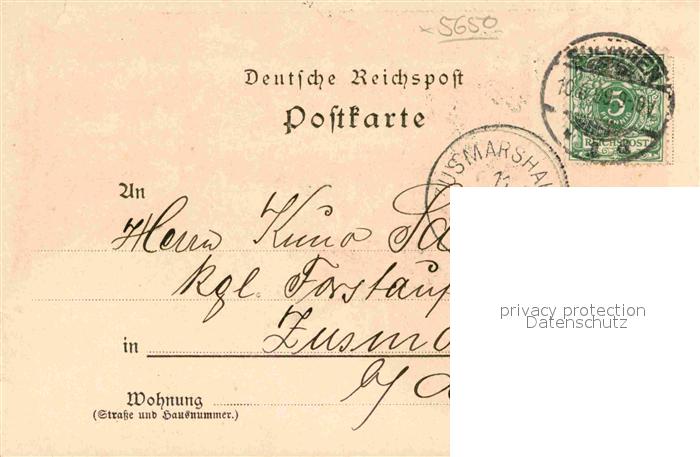 5650
Deutsche Reichspost
Postkarte
5
REICHSPOST
ZUSMARSHAU
11
An
Herrn Kuno Sa
kgl. Forstauf
in Zusma
Wohnung
(Straße und Hausnummer.)
privacy protection
Datenschutz